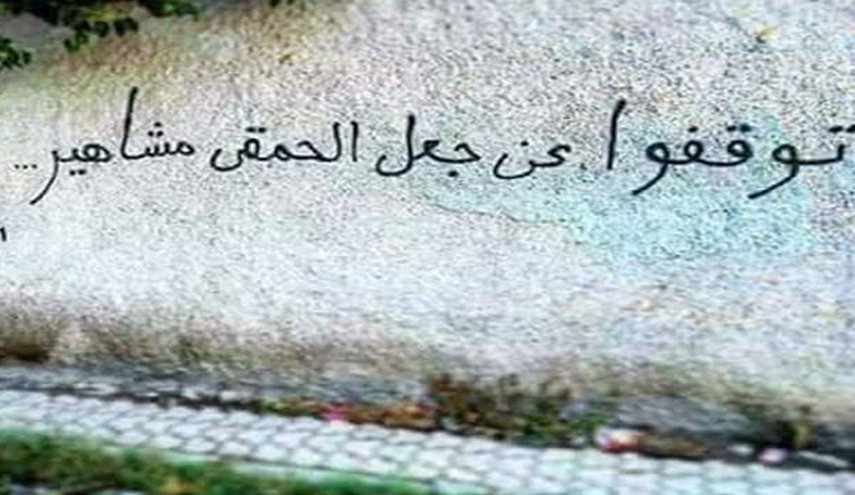 توقفوا عن جعل الحمقى مشاهير...